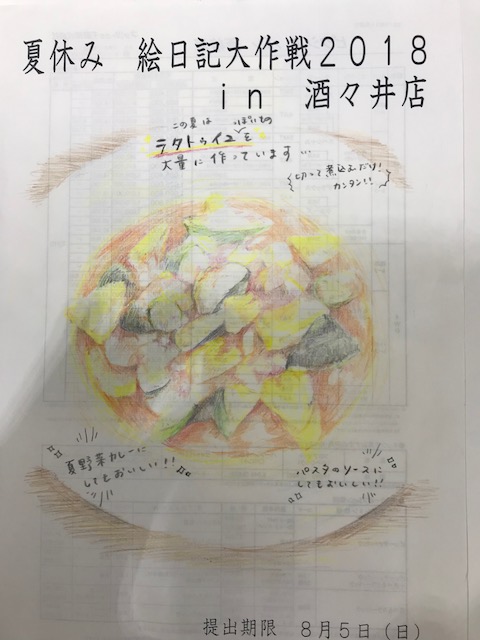 夏休み　絵日記大作戦２０１８
ｉｎ　酒々井店
この夏は　っぽいもの
ラタトゥイユを
大量に作っています…
切って煮込むだけ!
カンタン!!
夏野菜カレーに
してもおいしい!!
パスタのソースに
してもおいしい!!
提出期限　８月５日（日）